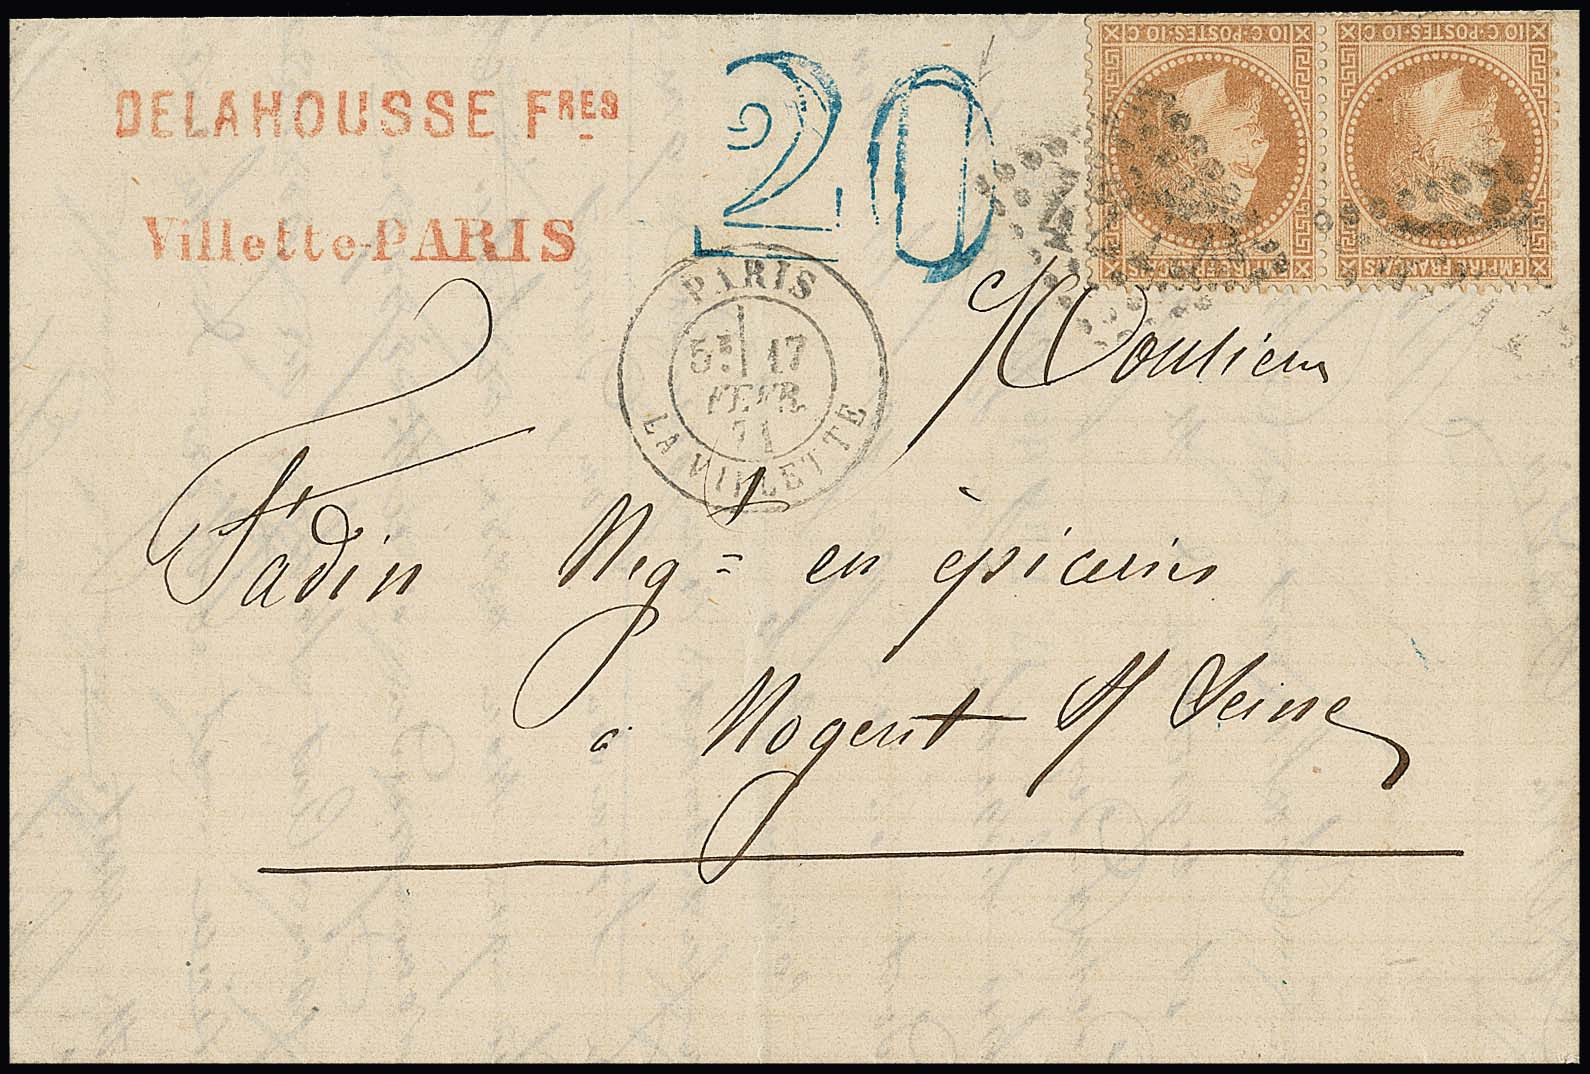 DELAHOUSSE FRES
Villette-PARIS
20
10 C·POSTES·10 C
10 C·POSTES·10 C
EMPIRE FRANÇAIS
EMPIRE FRANÇAIS
PARIS
5E 17
FEVR.
71
LA VILLETTE
Monsieur
Fadin Negt = en épiceries
à Nogent S/ Seine